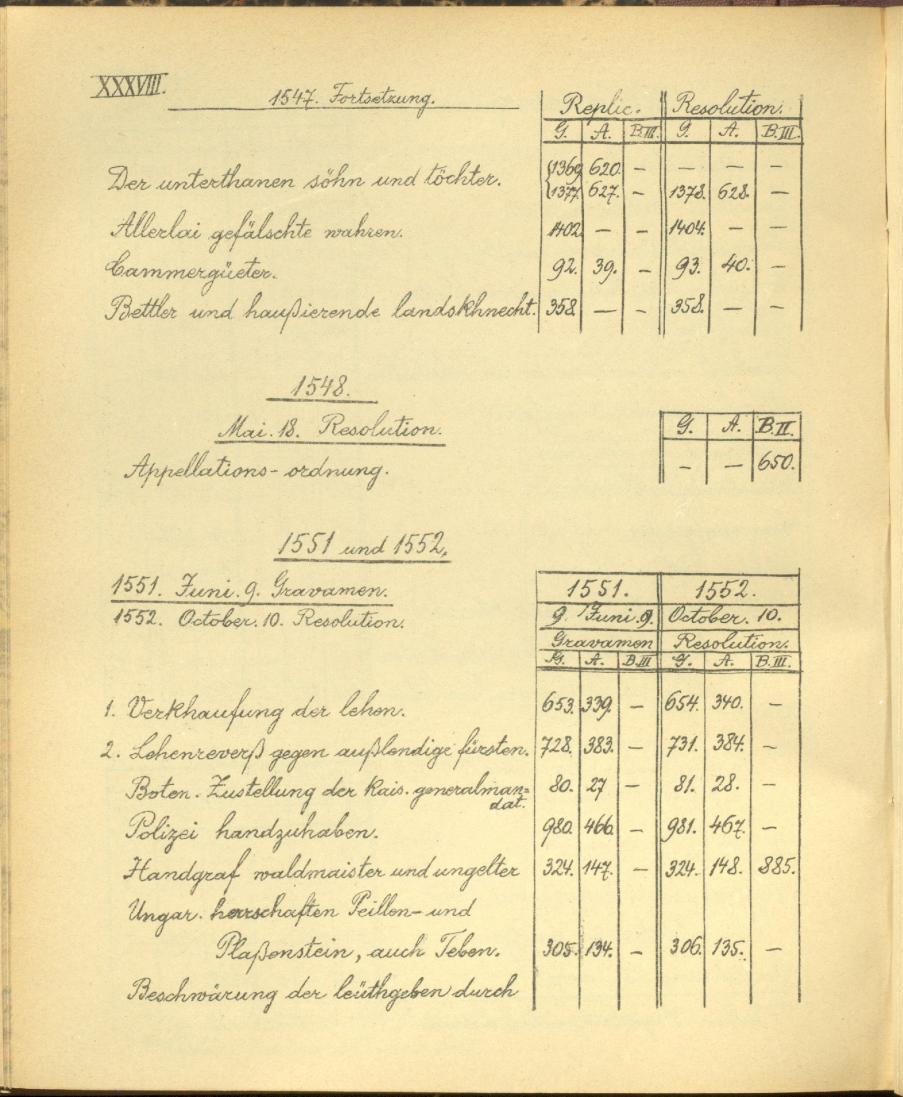 XXXVIII.
1547. Fortsetzung.
Replic. Resolution.
G. A. B.III. G. A. B.III.
Der unterthanen söhn und töchter. {1369 620. – – – –
{1377. 627. – 1378. 628. –
Allerlai gefälschte wahren. 1402. – – 1404. – –
Cammergüeter. 92. 39. – 93. 40. –
Bettler und haußierende landskhnecht. 358. – – 358. – –
1548.
Mai. 18. Resolution. G. A. B.II.
Appellations-ordnung. – – 650.
1551 und 1552.
1551. Juni. 9. Gravamen. 1551. 1552.
1552. October. 10. Resolution. 9. Juni. 9. October. 10.
Gravamen Resolution.
G. A. B.III G. A. B.III.
1. Verkhaufung der lehen. 653. 339. – 654. 340. –
2. Lehenreverß gegen außlendige fürsten. 728. 383. – 731. 384. –
Boten. Zustellung der kais. generalman= 80. 27 – 81. 28. –
dat.
Polizei handzuhaben. 980. 466. – 981. 467. –
Handgraf waldmaister und ungelter 324. 147. – 324. 148. 885.
Ungar. herrschaften Peillen- und
Plaßenstein, auch Teben. 305. 134. – 306. 135. –
Beschwärung der leüthgeben durch